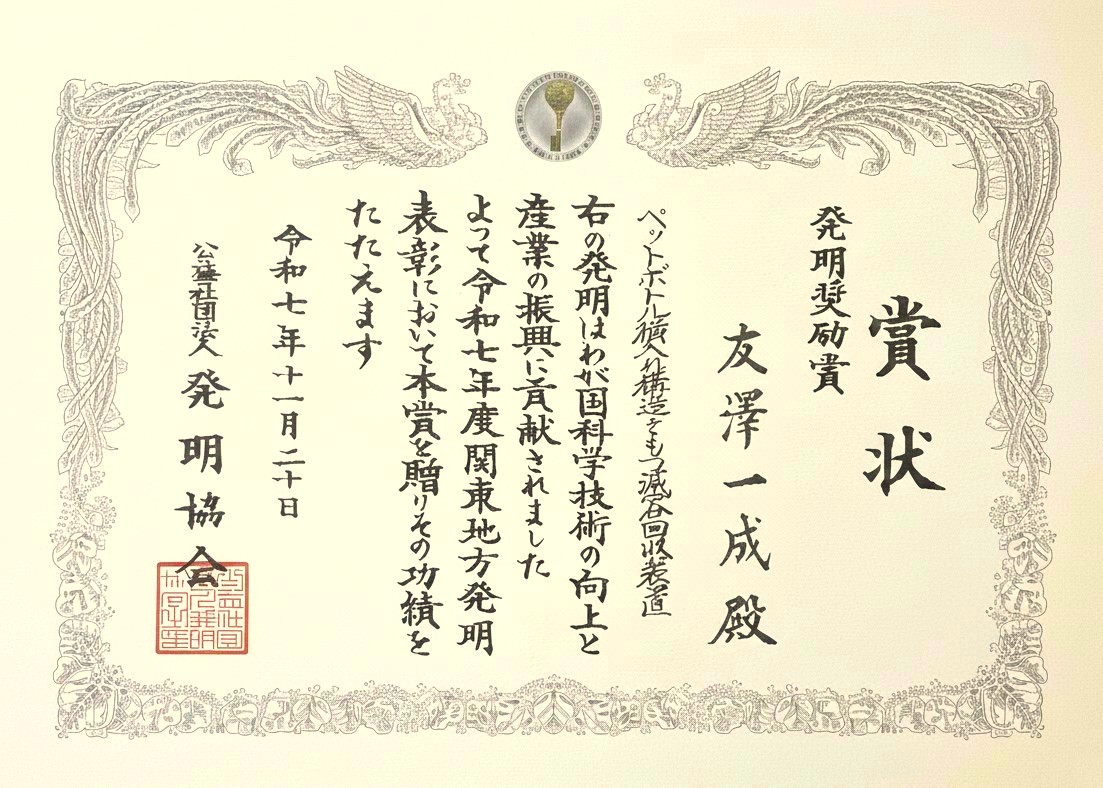 賞状
発明奨励賞
友澤一成殿
ペットボトル横入れ構造をもつ減容回収装置
右の発明はわが国科学技術の向上と
産業の振興に貢献されました
よって令和七年度関東地方発明
表彰において本賞を贈りその功績を
たたえます
令和七年十一月二十日
公益社団法人発明協会